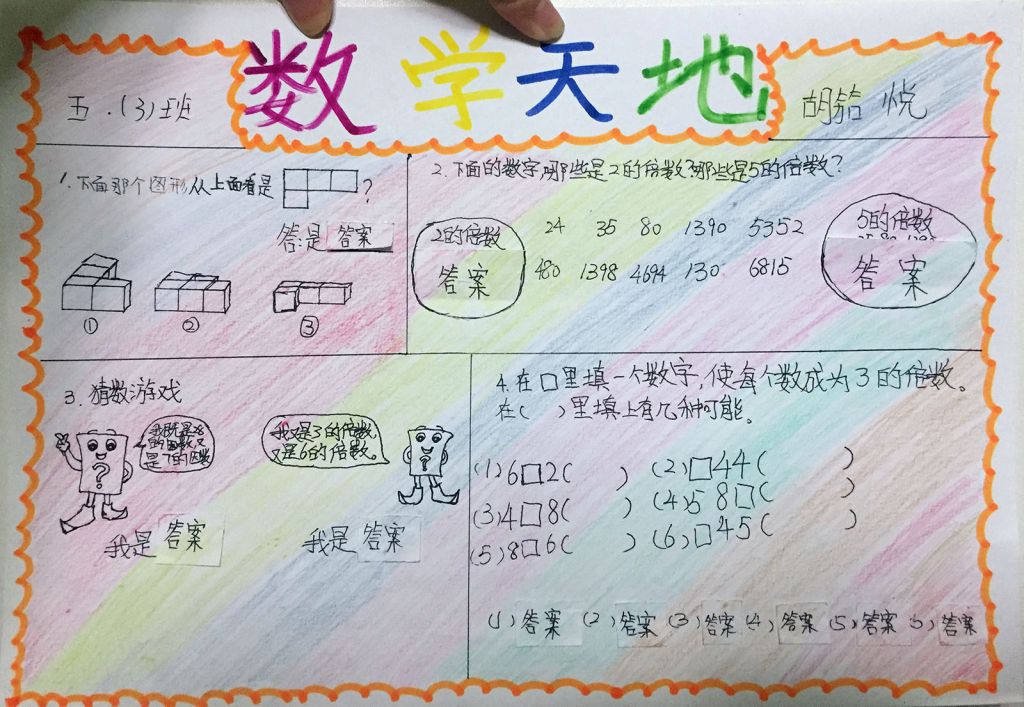 数学天地
五.(3)班
胡笳悦
1.下面那个图形从上面看是?
答:是 答案
① ② ③
2.下面的数字,哪些是2的倍数?哪些是5的倍数?
2的倍数
答案
24 35 80 1390 5352
480 1398 4694 130 6815
5的倍数
答案
3.猜数游戏
的因数又
是7的因数
我是 答案
我又是3的倍数,
又是6的倍数。
我是 答案
4.在口里填一个数字,使每个数成为3的倍数。
在( )里填上有几种可能。
(1)6口2( ) (2)口44( )
(3)4口8( ) (4)58口( )
(5)8口6( ) (6)口45( )
(1)答案 (2)答案 (3)答案 (4)答案 (5)答案 (6)答案